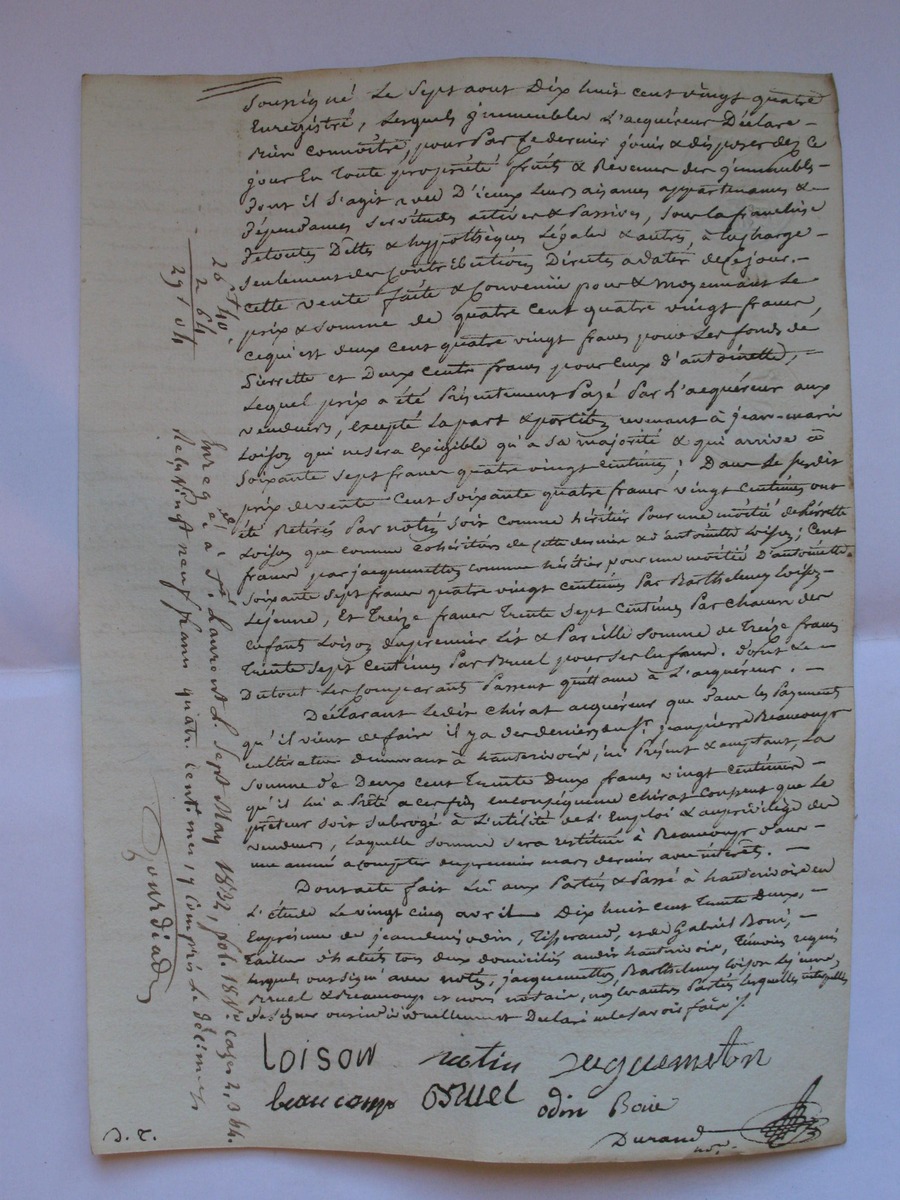 Soussigné le Sept aout Dix huit cent vingt quatre
Enregistré, lesquels jmmeubles l'acquéreur Déclare
Bien connoitre, pour Par Ce dernier jouir & disposer dez Ce
jour En toute propriété fruits & Revenus des jmmeubles
dont il s'agit avec D'iceux leurs aisances appartenances &
dépendances Servitudes actives & Passives, sous la franchise
detoutes Dettes & hypothèques Légales & autres, à la charge
Seulement des Contributions Directes adater de Cejour.
Cette vente faite & Convenue pour & moyennant le
prix & Somme de quatre Cent quatre vingt francs,
Cequi est deux Cent quatre vingt francs pour les fonds de
Pierrette et Deux Cents francs pour Ceux d'antoinette,
Lequel prix a été Présentement Payé Par l'acquéreur aux
vendeurs, Excepté la part & portion revenant à jean-marie
Loison qui nesera Exigible qu'a Sa majorité & qui arrive à
Soixante Sept francs quatre vingt Centimes; Dans le susdit
prix devente Cent Soixante quatre francs vingt Centimes ont
été Retirés Par notin Soit Comme héritier Pour une moitié de Pierrette
Loison que Comme Cohéritiers de Cette dernière & d'antoinette Loison; Cent
francs par jacquemetton Comme héritier pour une moitié D'antoinette
Soixante Sept francs quatre vingt Centimes Par Barthelemy Loison
Lejeune, Et Treize francs trente Sept Centimes Par Chacun des
Enfants Loison dupremier Lit & Pareille Somme de Treize francs
trente Sept Centimes Par Bruel pour Ses Enfans. Dont &
Dutout Les Comparants Passent quittance à L'acquéreur.
Déclarant ledit Chirat acquéreur que dans les Payements
qu'il vient defaire il ya des deniers du Sr. jeanpierre Beaucamp
Cultivateur demeurant à hauterivoire, ici Présent & acceptant, la
Somme de Deux Cent Trente Deux francs vingt Centimes
qu'il lui a Prêté a ces fins enconséquence Chirat Consent que le
prêteur soit subrogé à L'utilité de l'Emploi & auprivilège des
vendeurs, laquelle Somme Sera restituée à Beaucamp dans
une année acompter dupremier mars dernier avec intérêts.
Dont acte fait Lu aux Parties & Passé à hauterivoire en
L'étude Le vingt Cinq avril Dix huit Cent Trente Deux,
Enprésence de jeandenis odin, Tisserand, et de Gabriel Boné,
Tailleur d'habits tous deux domiciliés audit hauterivoire, Témoins requis
lesquels ontsigné avec notin, jacquemetton, Barthelemy Loison lejeune,
Bruel & Beaucamp et nous notaire, non les autres Parties lesquelles interpellées
designer ont individuellement Déclaré nele Savoir faire /.
Loison notin Jaquemeton
beaucamp Bruel odin Boné
Durand
nore.
D. T.
26 f 40
2 64
29 f 04
Enreg. à St. Laurent le Sept May 1832, fol. 18 Vo. cases 2, 3 & 4.
Reçu vingt neuf francs quatre centimes, y compris le décime
Gourdiad